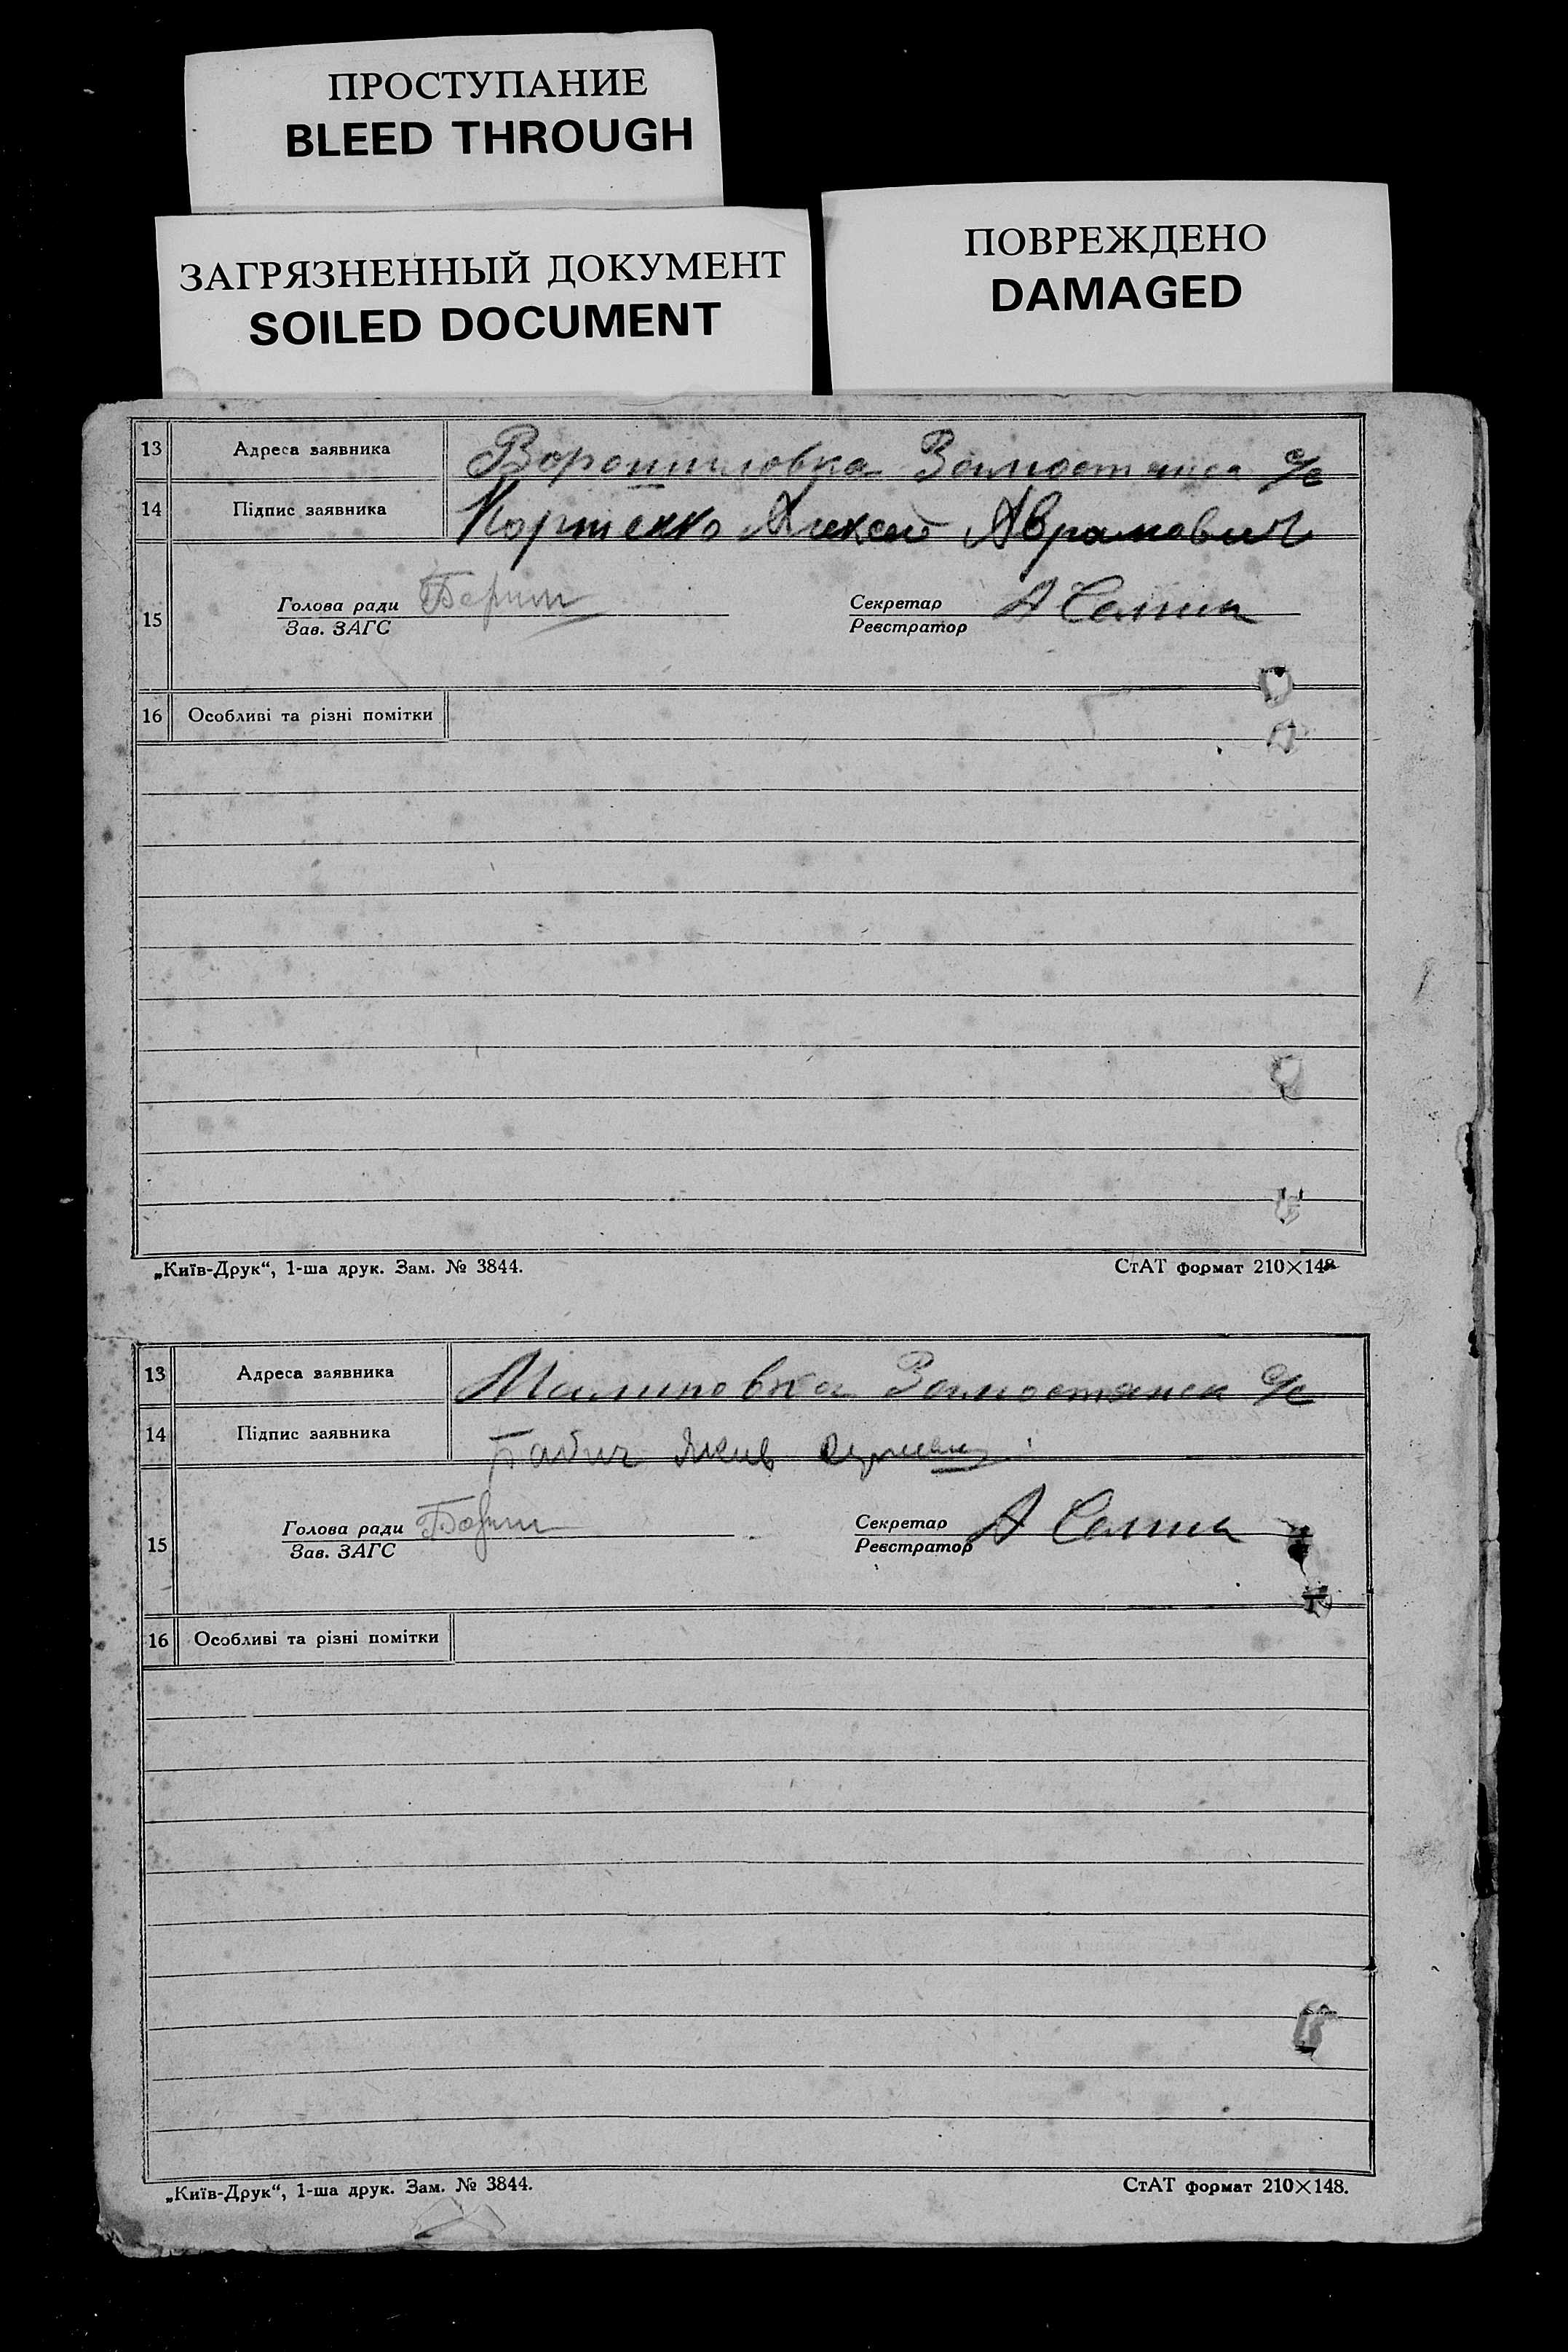 ПРОСТУПАНИЕ
BLEED THROUGH
ЗАГРЯЗНЕННЫЙ ДОКУМЕНТ
SOILED DOCUMENT
ПОВРЕЖДЕНО
DAMAGED
13 Адреса заявника Ворошиловка с/с
14 Підпис заявника Аврамович
15 Голова ради Секретар
Зав. ЗАГС Реєстратор
16 Особливі та різні помітки
„Київ-Друк“, 1-ша друк. Зам. № 3844. СтАТ формат 210×148
13 Адреса заявника Малиновка с/с
14 Підпис заявника Бабич Якив
15 Голова ради Секретар
Зав. ЗАГС Реєстратор
16 Особливі та різні помітки
„Київ-Друк“, 1-ша друк. Зам. № 3844. СтАТ формат 210×148.